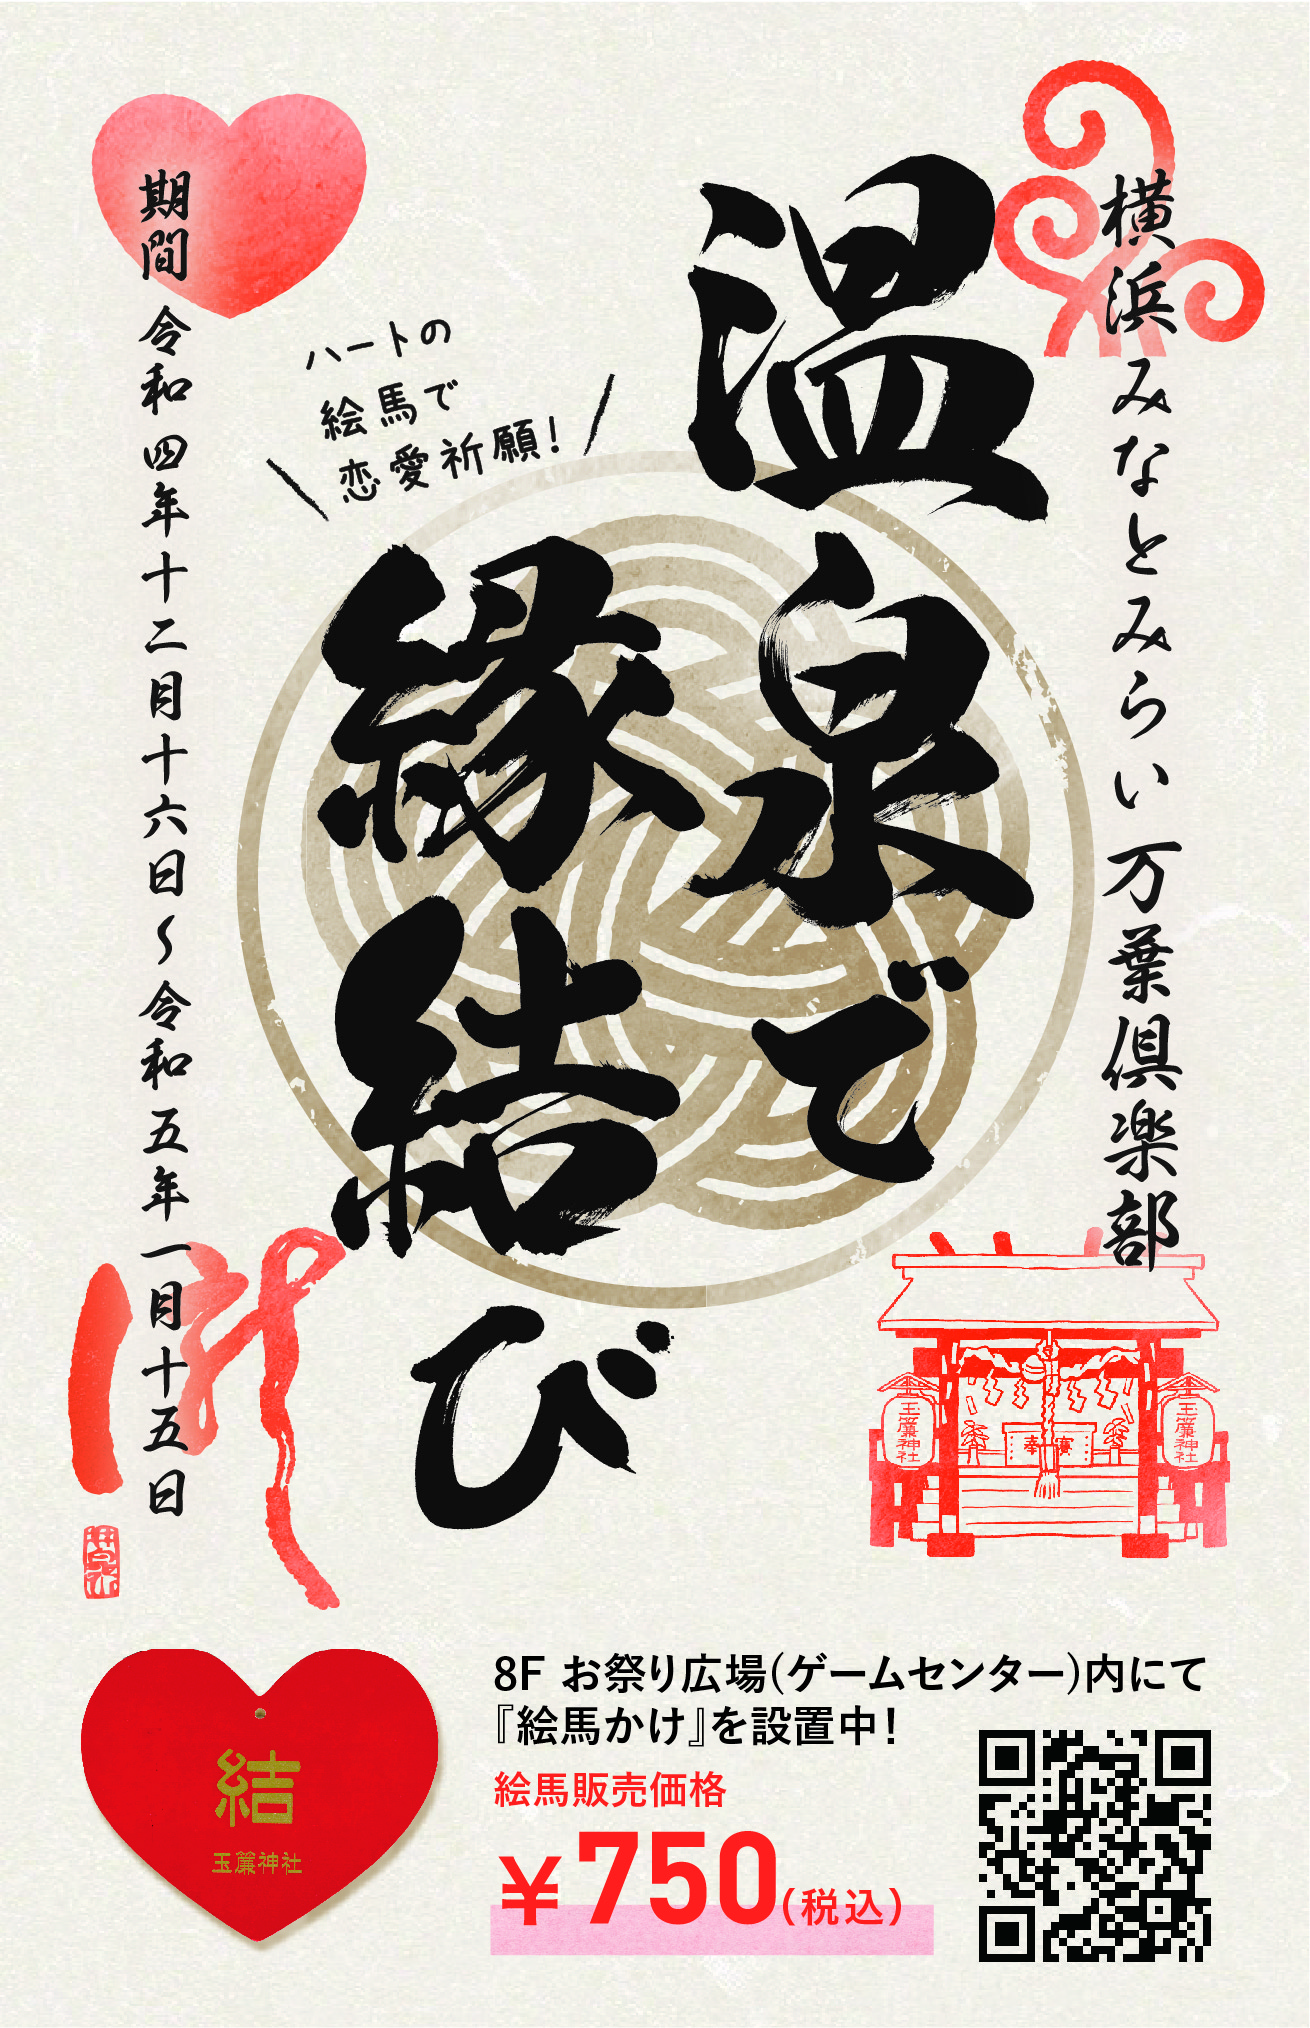 横浜みなとみらい万葉倶楽部
温泉で
縁結び
ハートの
絵馬で
恋愛祈願!
期間 令和四年十二月十六日〜令和五年一月十五日
玉簾神社
奉賽
玉簾神社
結
玉簾神社
8F お祭り広場(ゲームセンター)内にて
『絵馬かけ』を設置中!
絵馬販売価格
¥750(税込)